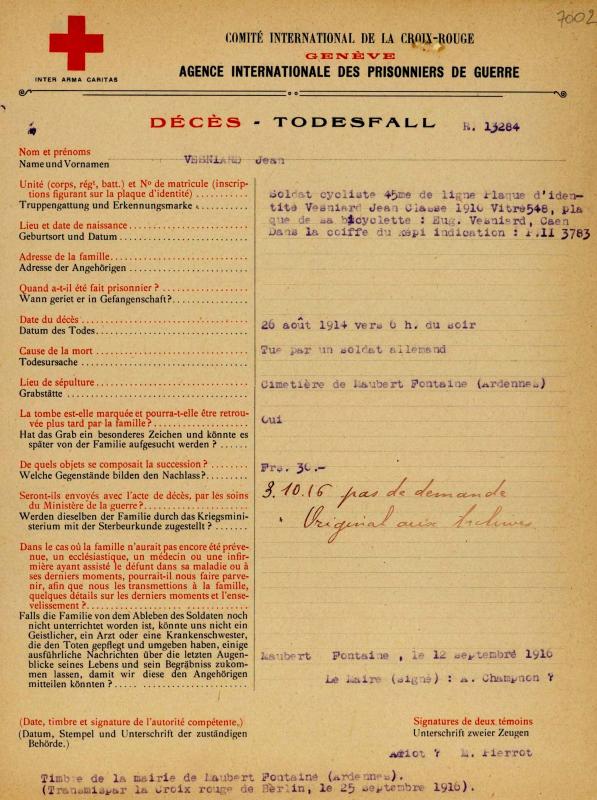 7002
COMITÉ INTERNATIONAL DE LA CROIX-ROUGE
GENÈVE
AGENCE INTERNATIONALE DES PRISONNIERS DE GUERRE
INTER ARMA CARITAS
DÉCÈS - TODESFALL R. 13284
Nom et prénoms
Name und Vornamen VESNIARD Jean
Unité (corps, régt, batt.) et No de matricule (inscriptions figurant sur la plaque d'identité)
Truppengattung und Erkennungsmarke
Soldat cycliste 45me de ligne Plaque d'iden-
tité Vesniard Jean Classe 1910 Vitré548, pla
que de sa bicyclette : Eug. Vesniard, Caen
Dans la coiffe du képi indication : P.II 3783
Lieu et date de naissance
Geburtsort und Datum
Adresse de la famille
Adresse der Angehörigen
Quand a-t-il été fait prisonnier ?
Wann geriet er in Gefangenschaft?
Date du décès
Datum des Todes 26 août 1914 vers 6 h. du soir
Cause de la mort
Todesursache Tué par un soldat allemand
Lieu de sépulture
Grabstätte Cimetière de Maubert Fontaine (Ardennes)
La tombe est-elle marquée et pourra-t-elle être retrou-
vée plus tard par la famille? Oui
Hat das Grab ein besonderes Zeichen und könnte es
später von der Familie aufgesucht werden ?
De quels objets se composait la succession ?
Welche Gegenstände bilden den Nachlass? Frs. 30.-
Seront-ils envoyés avec l'acte de décès, par les soins
du Ministère de la guerre?
Werden dieselben der Familie durch das Kriegsmini-
sterium mit der Sterbeurkunde zugestellt ?
3.10.16 pas de demande
Original aux Archives
Dans le cas où la famille n'aurait pas encore été préve-
nue, un ecclésiastique, un médecin ou une infir-
mière ayant assisté le défunt dans sa maladie ou à
ses derniers moments, pourrait-il nous faire parve-
nir, afin que nous les transmettions à la famille,
quelques détails sur les derniers moments et l'ense-
velissement ?
Falls die Familie von dem Ableben des Soldaten noch
nicht unterrichtet worden ist, könnte uns nicht ein
Geistlicher, ein Arzt oder eine Krankenschwester,
die den Toten gepflegt und umgeben haben, einige
ausführliche Nachrichten über die letzten Augen-
blicke seines Lebens und sein Begräbniss zukom-
men lassen, damit wir diese den Angehörigen
mitteilen könnten ?
Maubert Fontaine , le 12 septembre 1916
Le Maire (signé) : A. Champnon ?
(Date, timbre et signature de l'autorité compétente,)
(Datum, Stempel und Unterschrift der zuständigen
Behörde.)
Signatures de deux témoins
Unterschrift zweier Zeugen
Adiot ? M. Pierrot
Timbre de la mairie de Maubert Fontaine (Ardennes).
(Transmispar la Croix rouge de Berlin, le 25 septembre 1916).